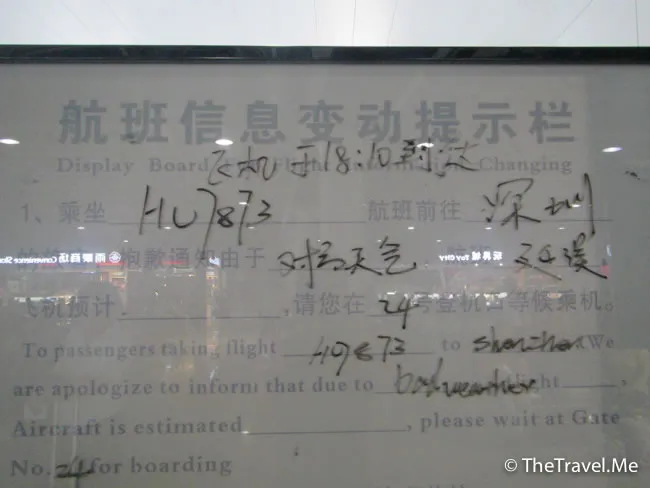 航班信息变动提示栏
飞机于18:10到达
Display Board of Flight Information Changing
1、乘坐 HU7873 航班前往 深圳
的旅客，抱歉通知由于 对方天气 航班 延误
飞机预计 ,请您在 24 号登机口等候乘机。
To passengers taking flight HU7873 to shenzhen We
are apologize to inform that due to bad weather flight ,
Aircraft is estimated , please wait at Gate
No. 24 for boarding
Convenience Store
玩具城 Toy City
© TheTravel.Me